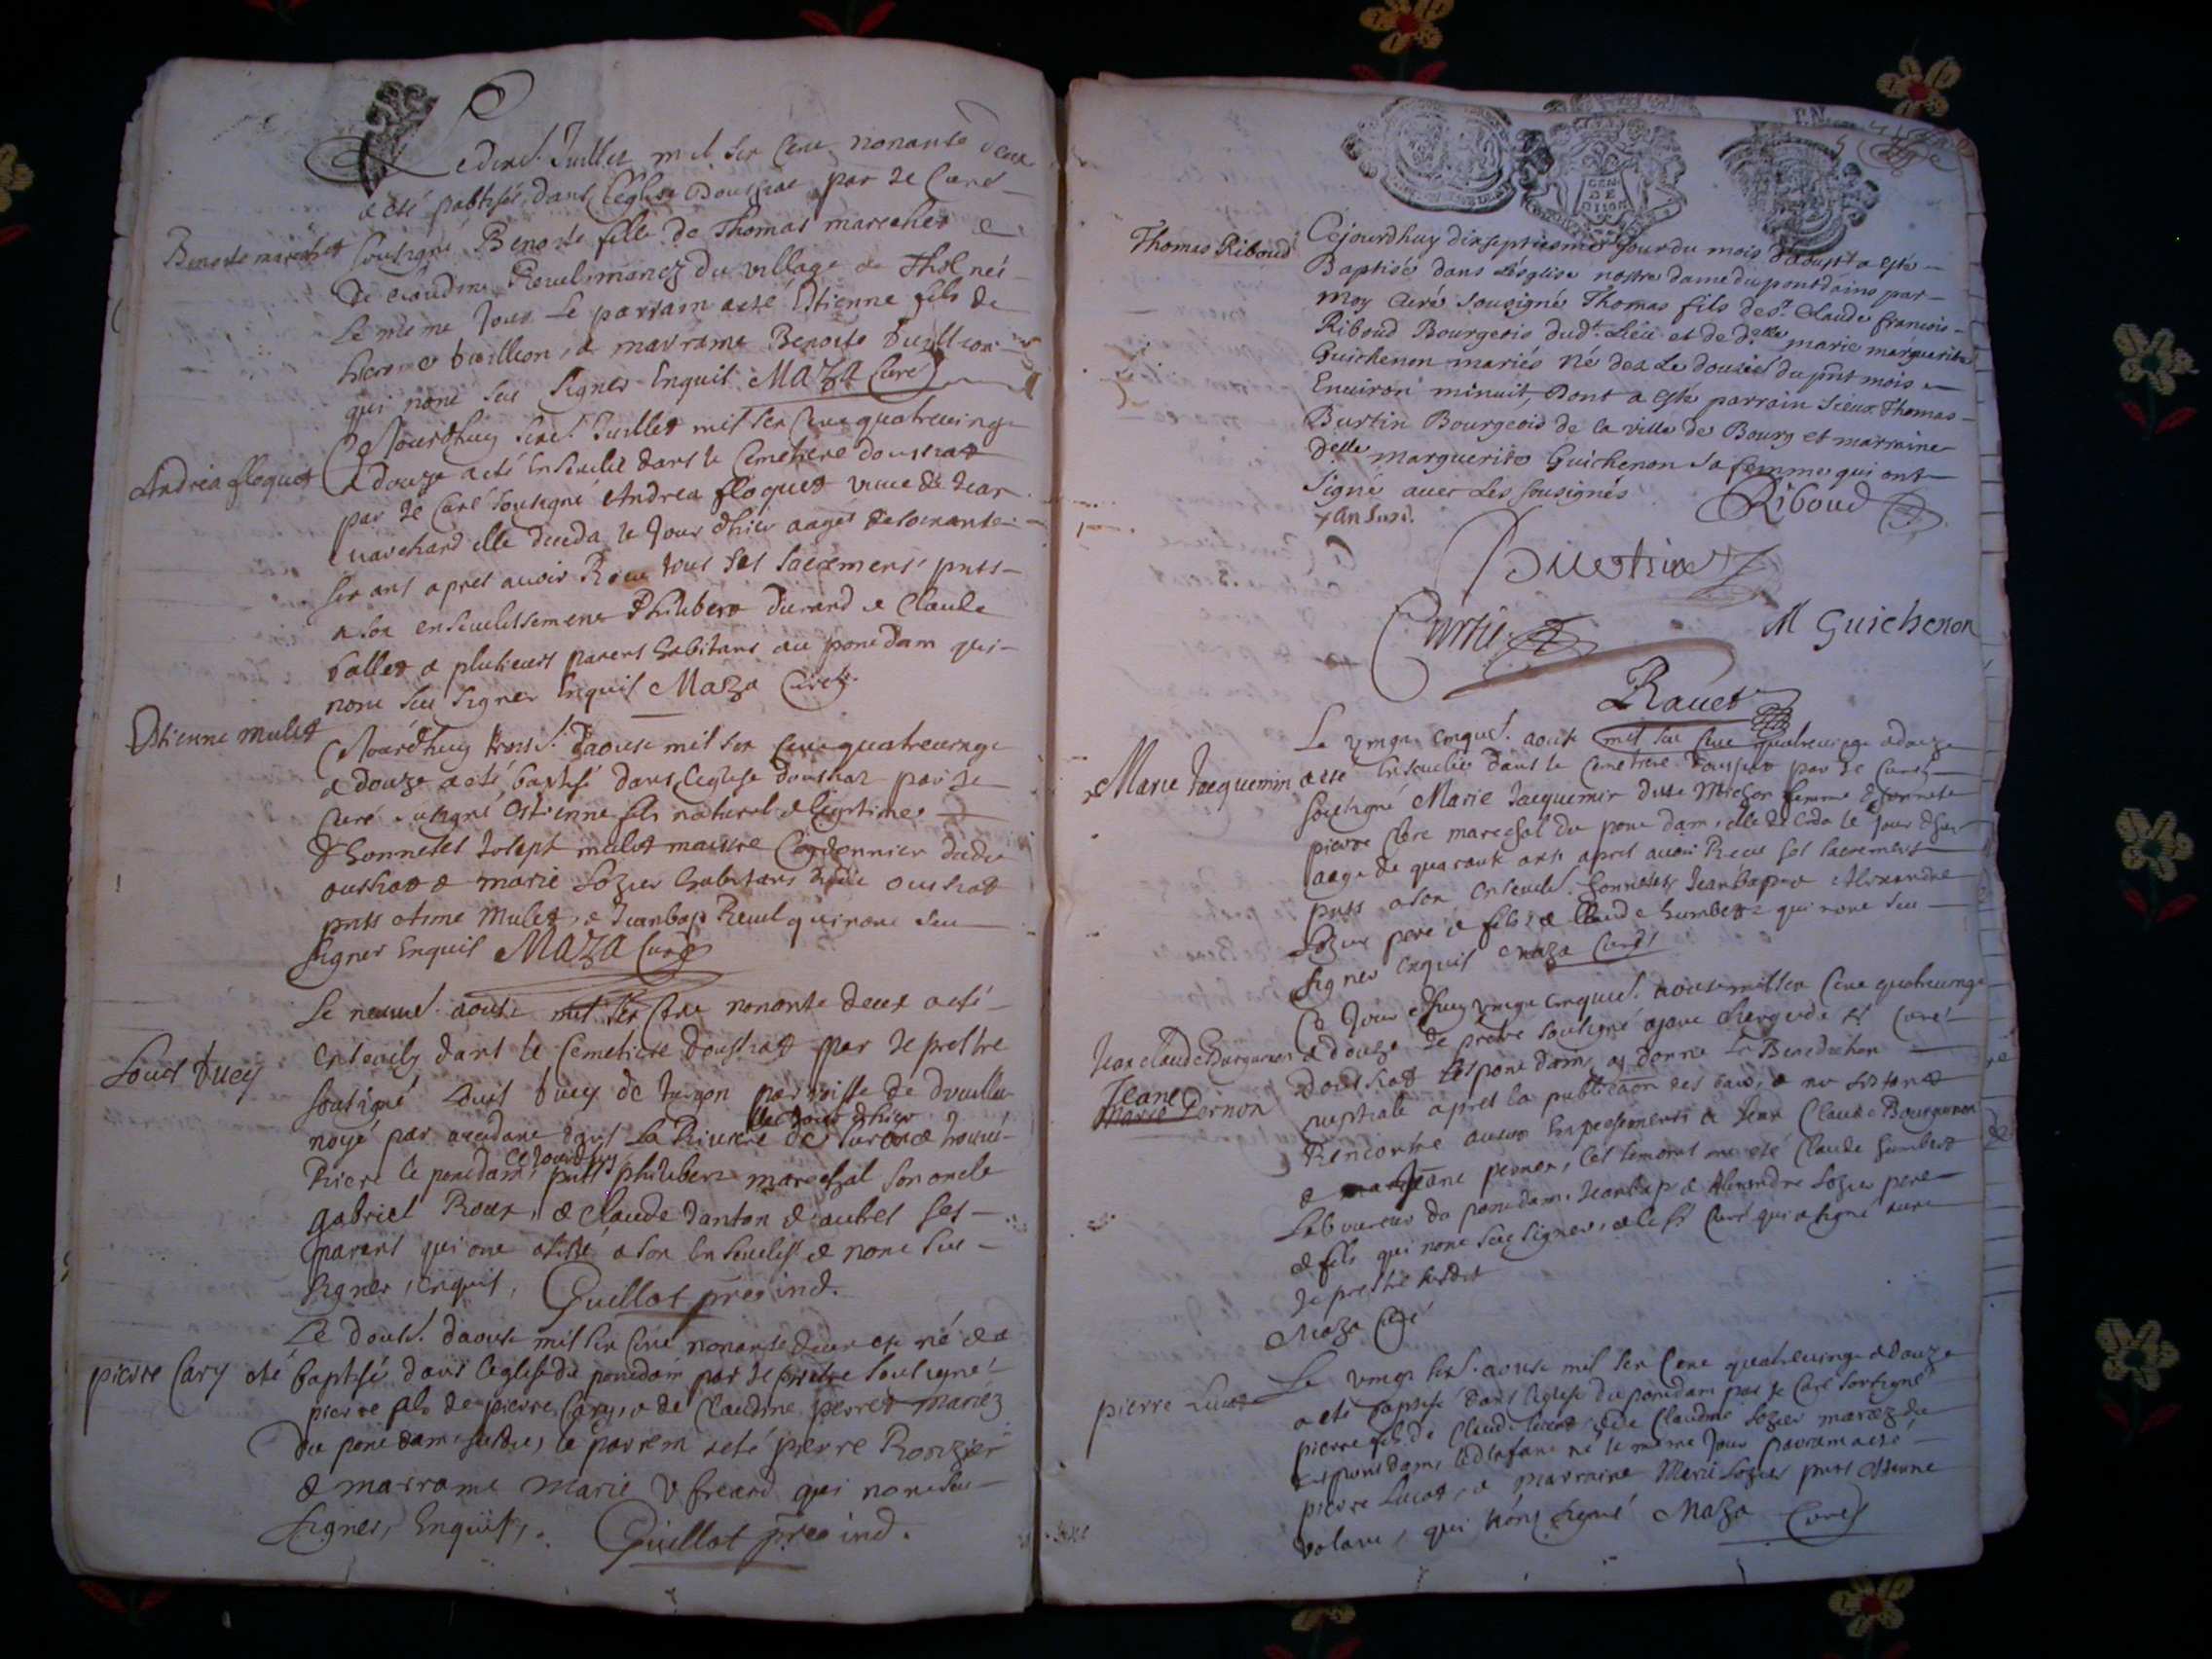 Le dixe. Juillet mil six cent nonante deux
a eté baptisée dans l'eglise Doussiat par Je Curé
Benoite marechet
soussigné Benoite fille de Thomas marechet &
de Claudine du village de Thol née
le meme Jour le parrain a esté Estienne fils de
& marraine Benoite
qui nont sceu signer Enquis MAZA Curé
Andrea floquet
Cejourdhuy Juillet mil six cent quatreuingt
& douze a eté Enseuelie dans le Cemetiere doussiat
par Je Curé soussigné Andrea floquet veuue de Jean
elle deceda le Jour d'hier aagée de soixante
six ans apres auoir Receu tous ses sacremens, pnts
a son enseuelissement Philibert durand & Claude
ballet & plusieurs parens habitans au pontdain qui
nont sceu signer Enquis Maza Curé
Estienne mulet
Cejourdhuy trois. daoust mil six cent quatreuingt
& douze a eté baptisé dans l'eglise doussiat par Je
Curé soussigné Estienne fils naturel & legitime
d'honnetes Joseph mulet maitre Cordonnier dudit
oussiat & marie Lozier habitans dudit oussiat
pnts Aime Mulet, & Jeanbap Reuil qui nont sceu
signer Enquis MAZA Curé
Louis Bucy
Le neuuie. aoust mil six Cent nonante deux a esté
enseuely dans le Cemetiere doussiat par Je prestre
soussigné Louis Bucy de parroisse de
le jour d'hier
noyé par accidant dans La Riuiere de & trouué
cejourdhuy
Riere le pontdain, pnts philibert marechal son oncle
Gabriel Roux, & Claude danton & autres ses
parens qui ont assisté a son Enseueliss & nont sceu
signer, enquis, Guillot pre ind.
Pierre Cary
Le douse. daoust mil six cent nonante deux est né & a
eté baptisé dans l'eglise du pontdain par Je prestre soussigné
pierre fils de pierre Cary, & de Claudine perret mariez
du pontdain susdit, le parrein a eté pierre Rouzier
& marraine marie qui nont sceu
signer, Enquis, Guillot pre ind.
Thomas Riboud
Cejourdhuy dixseptiesme jour du mois d'aoust a esté
Baptisé dans L'église nostre dame du pontdains par
moy Curé sousigné Thomas fils de sr. Claude francois
Riboud Bourgeois dudt. Lieu et de delle marie marguerite
Guichenon mariés né dez Le douzie du pnt mois
Enuiron minuit, Dont a esté parrain Sieur Thomas
Burtin Bourgeois de la ville de Bourg et marraine
Delle marguerite Guichenon sa femme qui ont
signé auec Les sousignés
Riboud
Burtin
M Guichenon
Rauet
Marie Jacquemin
Le vingt cinquie. aoust mil six cent quatreuingt & douze
a esté Enseuelie dans le Cemetiere doussiat par Je Curé
soussigné Marie Jacquemin ditte Michon femme d'honnete
pierre Clere marechal du pont dain, elle deceda le jour d'hier
aagée de quarante ans apres auoir Receu ses sacremens
pnts a son enseuel. honnetes Jeanbaptiste & Alexandre
Lozier pere & fils, & Claude humbert qui nont sceu
signer enquis Maza Curé
Jean Claude Bourguenon
Jeane
Marie Pernon
Ce Jour d'huy vingt cinquie. aoust mil six Cent quatreuingt
& douze Je prêtre soussigné ayant charge de sr Curé
doussiat & pontdain, ay donné la Benediction
nuptiale apres la publication des bans, & n'y ayant
Rencontré aucun Empechement a Jean Claude Bourguenon
& Jeane pernon, les temoins ont eté Claude humbert
Laboureur du pontdain, Jeanbap & Alexandre Lozier pere
& fils qui nont sceu signer, & le sr Curé qui a signé auec
Je prestre susdit
Maza Curé
pierre Lucot
Le vingt sixe. aoust mil six Cent quatreuingt & douze
a eté baptisé dans l'eglise du pontdain par Je Curé soussigné
pierre fils de Claude Lucot & de Claudine Lozier mariez du
dit pontdain, led enfant né le meme Jour parrain a esté
pierre Lucot, & marraine Marie Lozier pnts Estienne
volant, qui n'ont signé Maza Curé